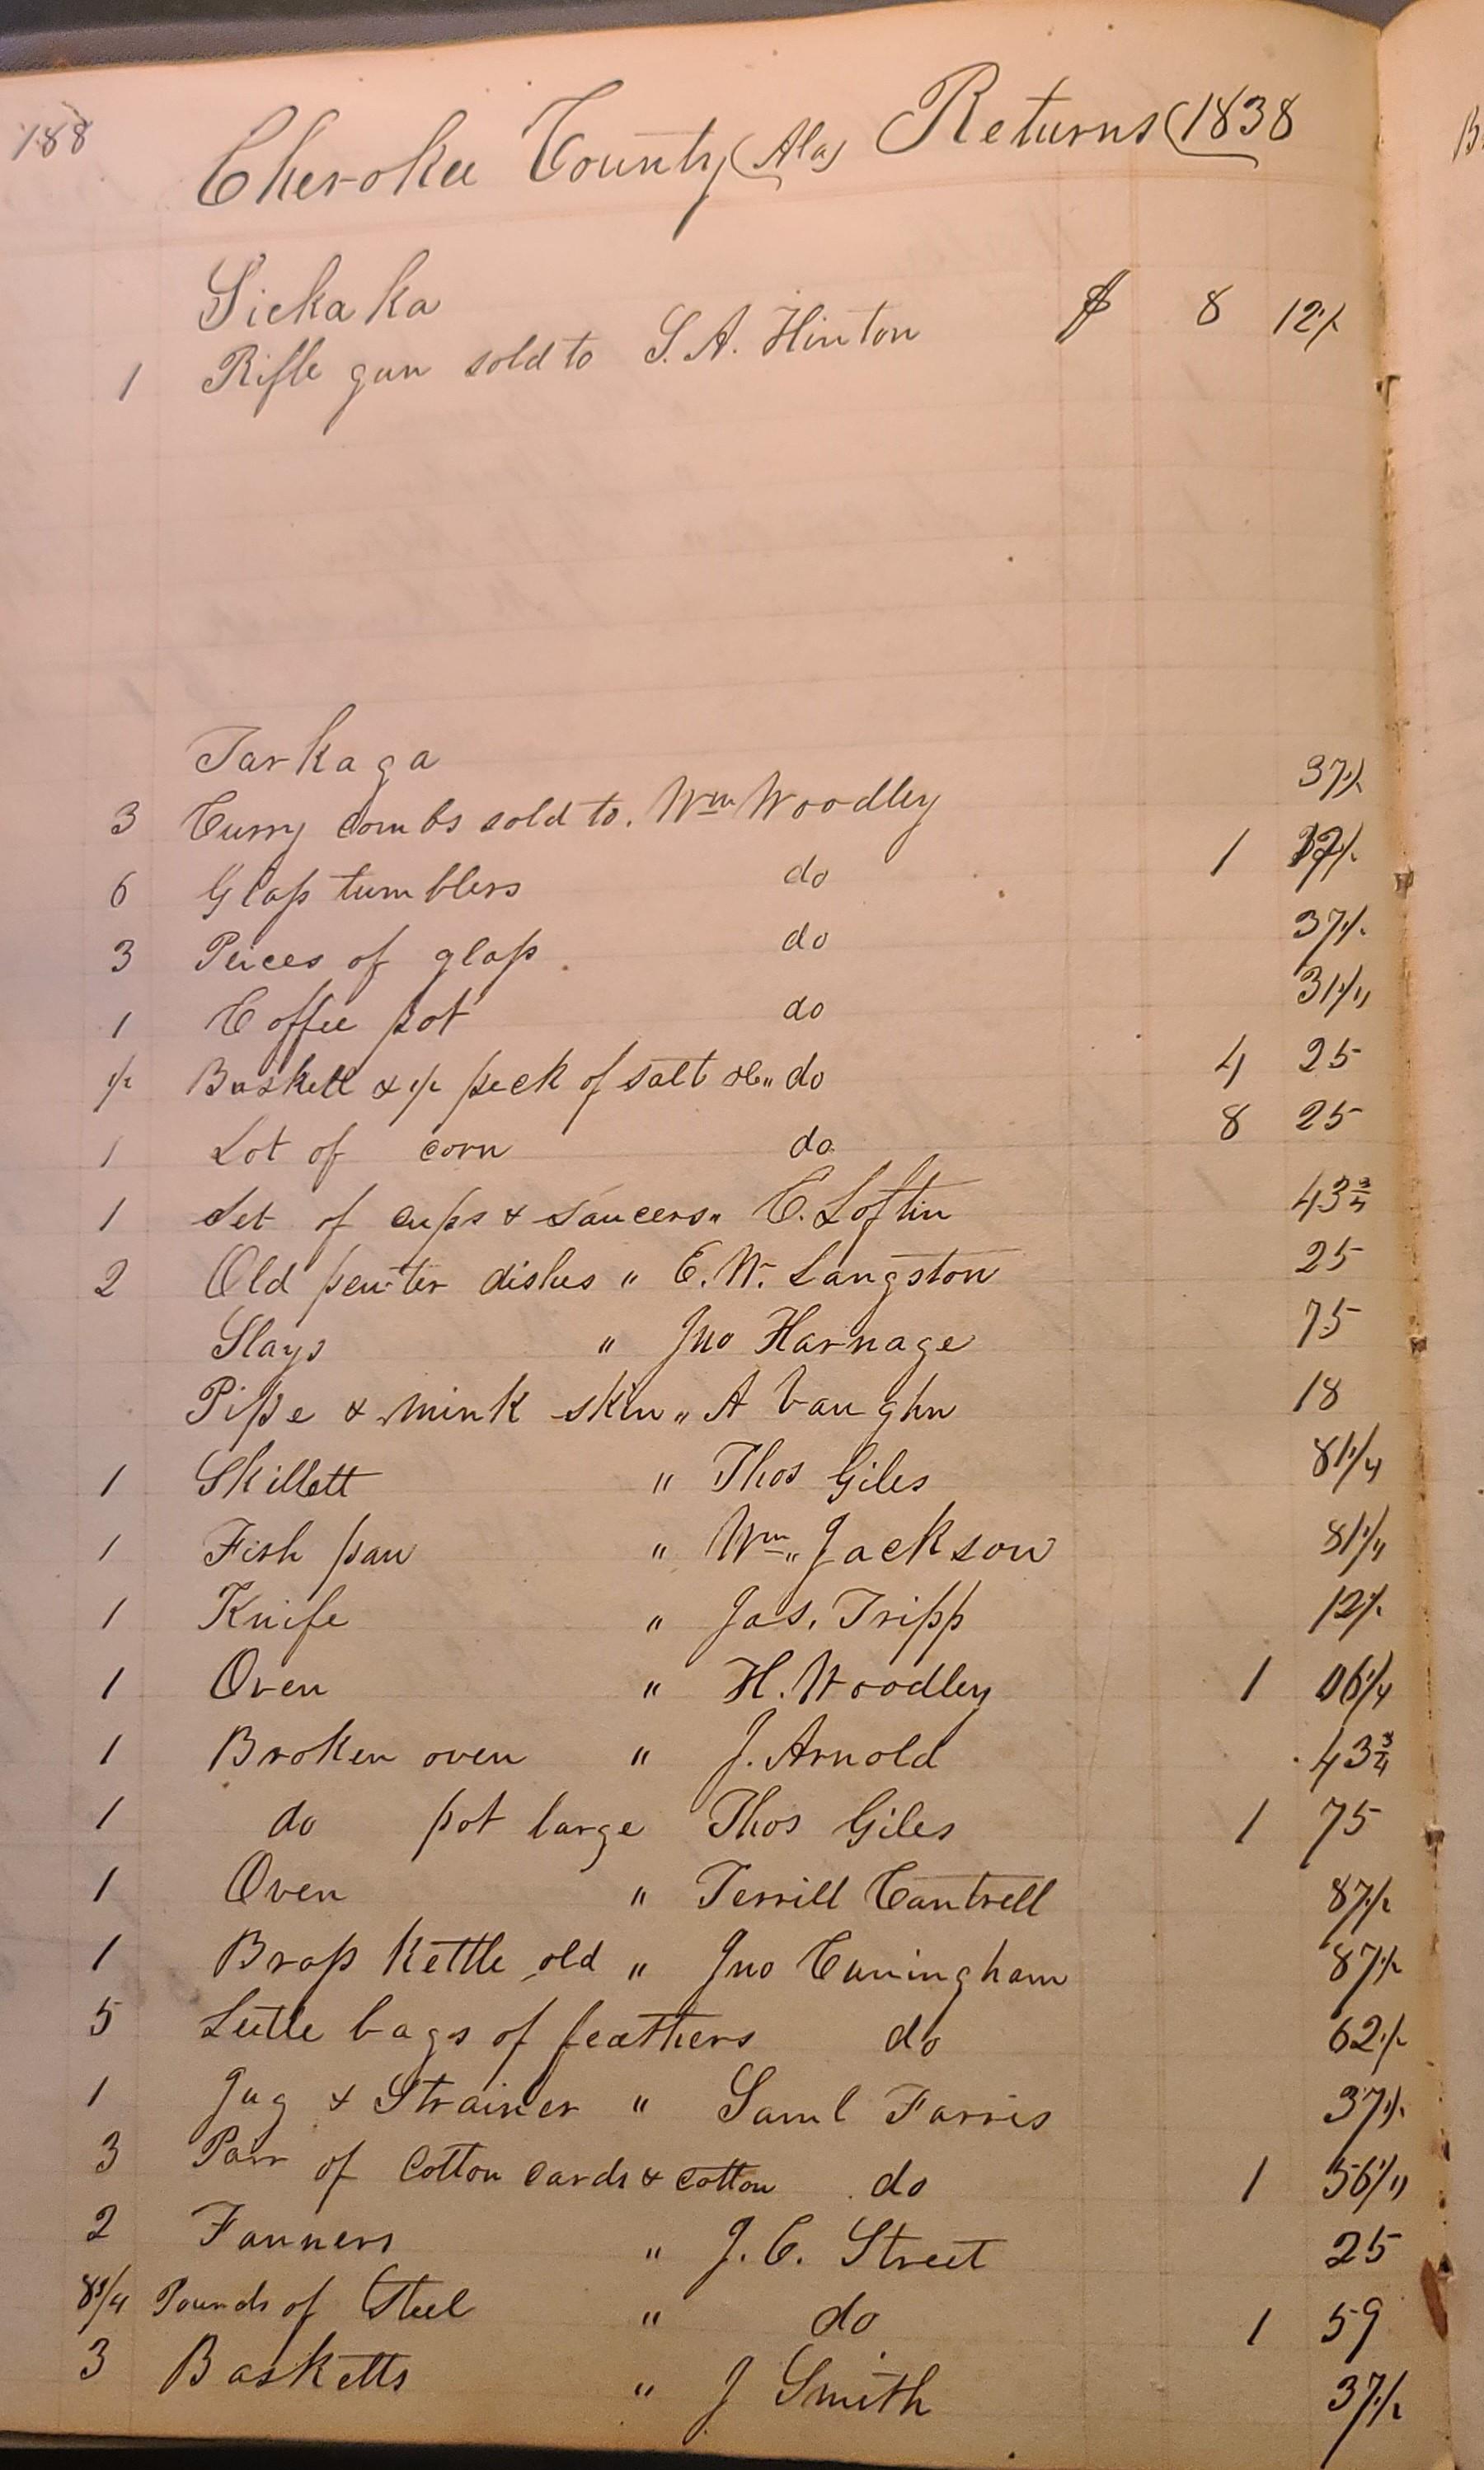 188
Cherokee County (Ala) Returns (1838
Sickaka
1 Rifle gun sold to S. A. Hinton $ 8 12½
Tarkaga
3 Curry combs sold to. Wm Woodley 37½
6 Glass tumblers do 1
3 Peices of glass. do 37½
1 Coffee pot do 31¼
½ Baskett & ½ peck of salt do 4 25
1 Lot of corn do 8 25
1 Set of cups & saucers " C. Loftin 43¾
2 Old pewter dishes " E. W. Langston 25
Slays " Jno Harnage 75
Pipe & mink skin " A Vaughn 18
1 Skillett " Thos Giles 81¼
1 Fish pan " Wm " Jackson 81¼
1 Knife " Jas. Tripp 12½
1 Oven " H. Woodley 1 06¼
1 Broken oven " J. Arnold 43¾
1 do pot large Thos Giles 1 75
1 Oven " Terrill Cantrell 87½
1 Brass Kettle old " Jno Cuningham 87½
5 Little bags of feathers do 62½
1 Jug & Strainer " Saml Farris 37½
3 Pair of Cotton Cards & cotton do 1 56¼
2 Fanners " J. C. Street 25
8¾ Pounds of Steel " do 1 59
3 Basketts " J Smith 37½